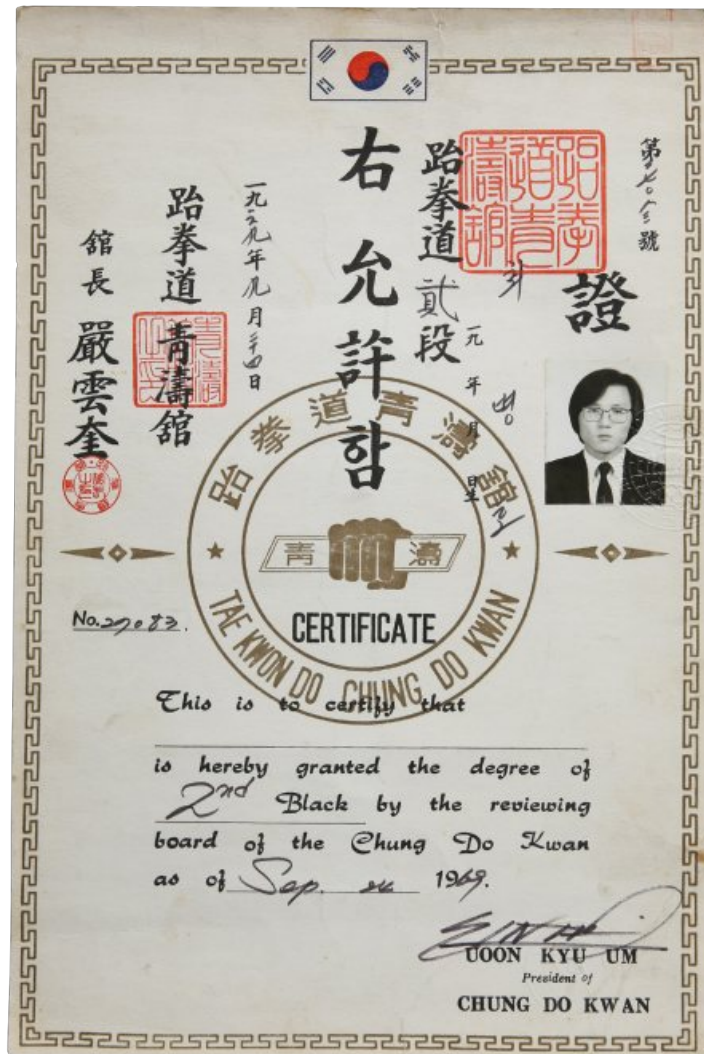 證
跆拳道青濤舘
跆拳道 貳段
一九 年 月 日生
右允許함
一九六九年九月二十四日
跆拳道 靑濤舘
舘長 嚴雲奎
跆拳道青濤舘
青濤
TAE KWON DO CHUNG DO KWAN
No. 27083.
CERTIFICATE
This is to certify that
is hereby granted the degree of
2nd Black by the reviewing
board of the Chung Do Kwan
as of Sep. 24 1969.
UOON KYU UM
President of
CHUNG DO KWAN